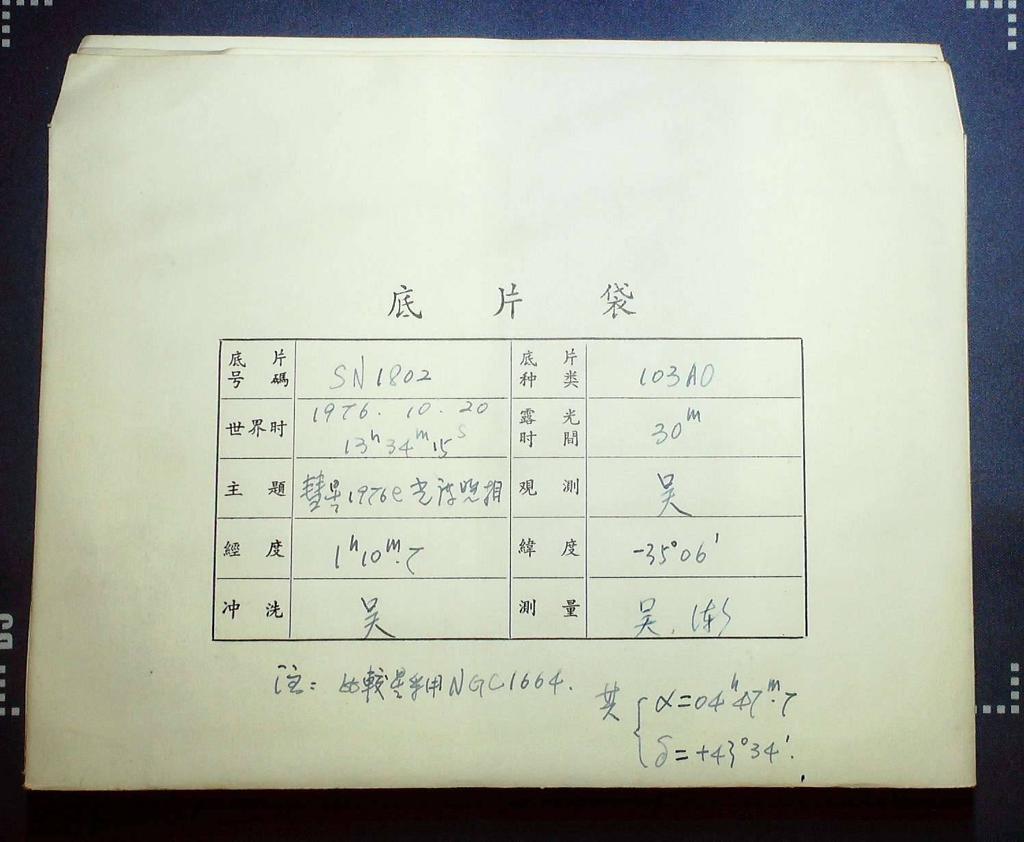 底片袋
底片号碼 SN1802 底片种类 103AO
世界时 1976. 10. 20 13ʰ34ᵐ15ˢ 露光时間 30ᵐ
主題 彗星1976e 观測 吴
經度 1ʰ10ᵐ.7 緯度 -35°06′
冲洗 吴 測量 吴.
注: 比較星采用NGC1664.
其 { α=04ʰ47ᵐ.7
δ=+43°34′.